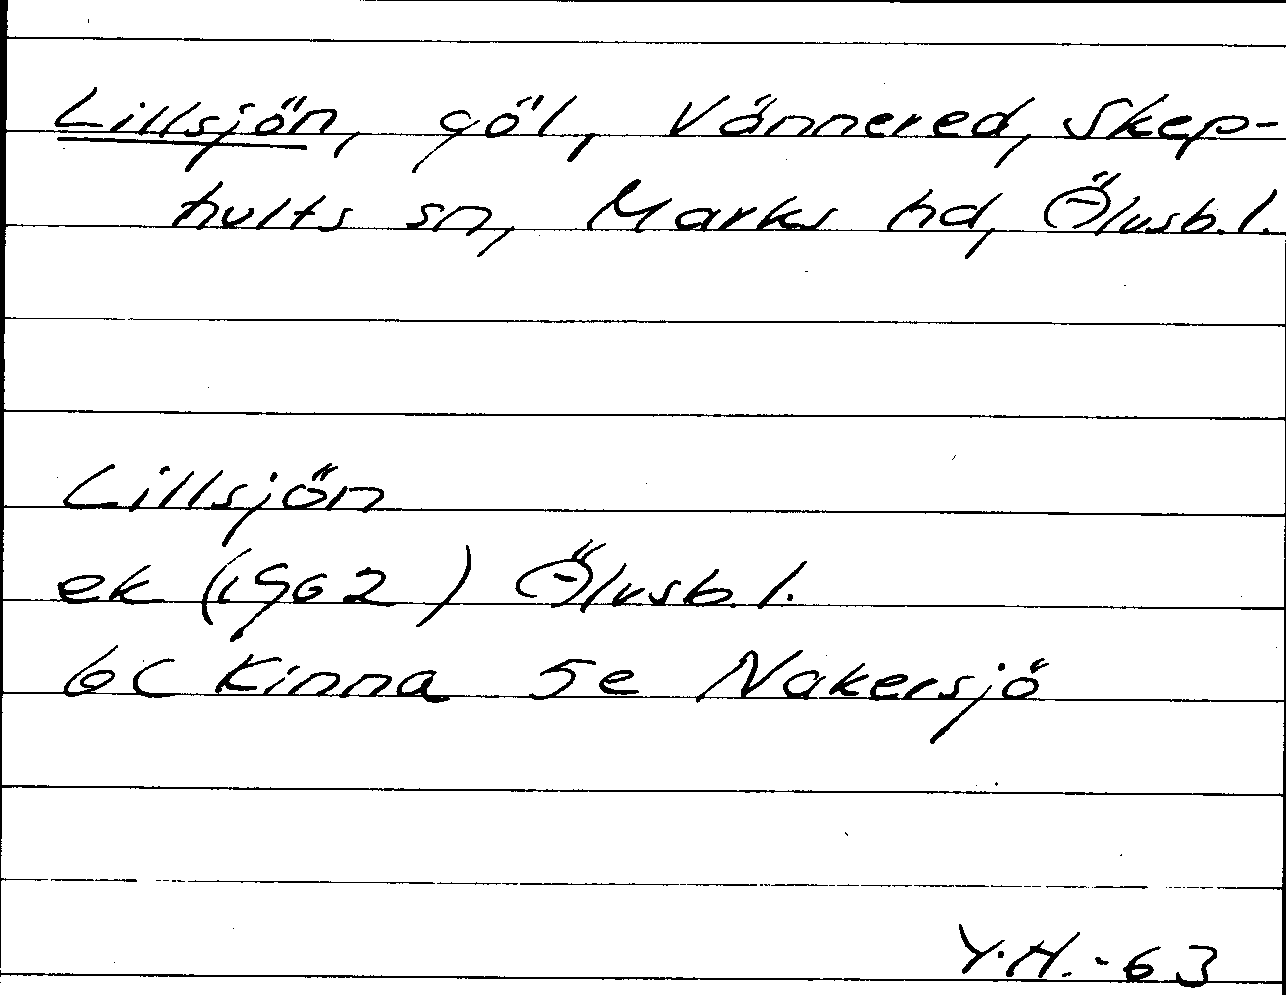 Lillsjön, göl, Vännered, Skep-
hults sn, Marks hd, Älvsb. l.
Lillsjön
ek (1962) Älvsb. l.
6C Kinna 5e Nakersjö
Y.H.-63